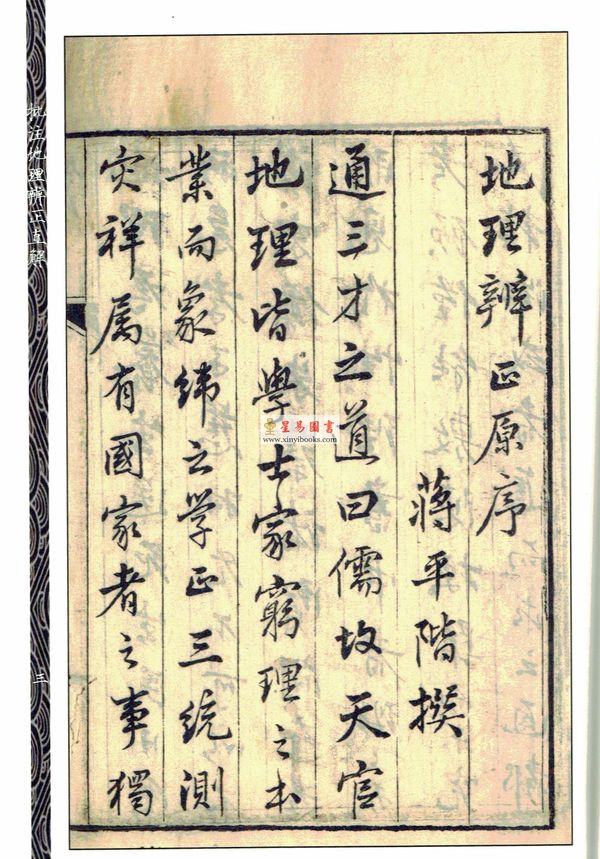 地理辨正原序
蔣平階撰
通三才之道曰儒故天官
地理皆學士家窮理之本
業而象緯之学正三統測
灾祥属有國家者之事獨
批注地理辨正直解
三
星易圖書
www.xinyibooks.com